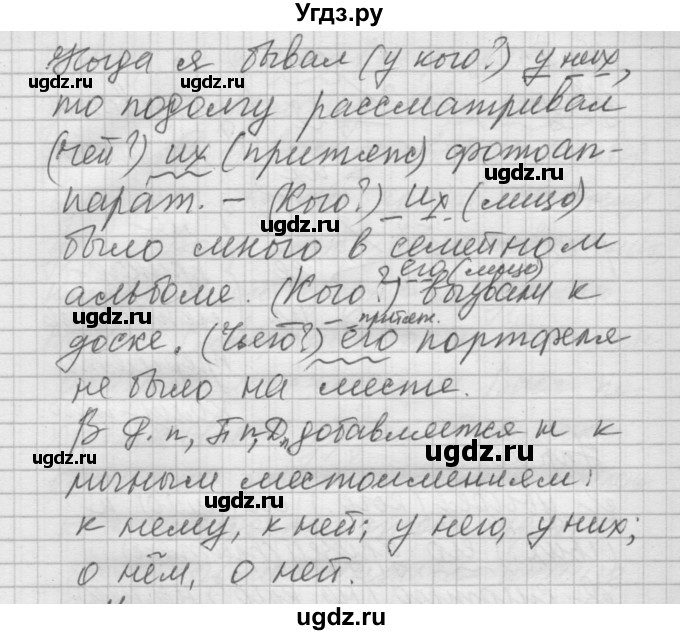 Угдз.ру
Когда я бывал (у кого?) у них,
то подолгу рассматривал
(чей?) их (притяж) фотоап-
парат. – (Кого?) их (лицо)
было много в семейном
его (лицо)
альбоме. (Кого?) вызвали к
притяж.
доске. (Чьего?) его портфеля
не было на месте.
В Р.п, П п, Д п добавляется н к
личным местоимениям:
к нему, к ней; у него, у них;
о нём, о ней.
ugdz.ru
ugdz.ru
ugdz.ru
ugdz.ru
ugdz.ru
ugdz.ru
ugdz.ru
ugdz.ru
ugdz.ru
ugdz.ru
ugdz.ru